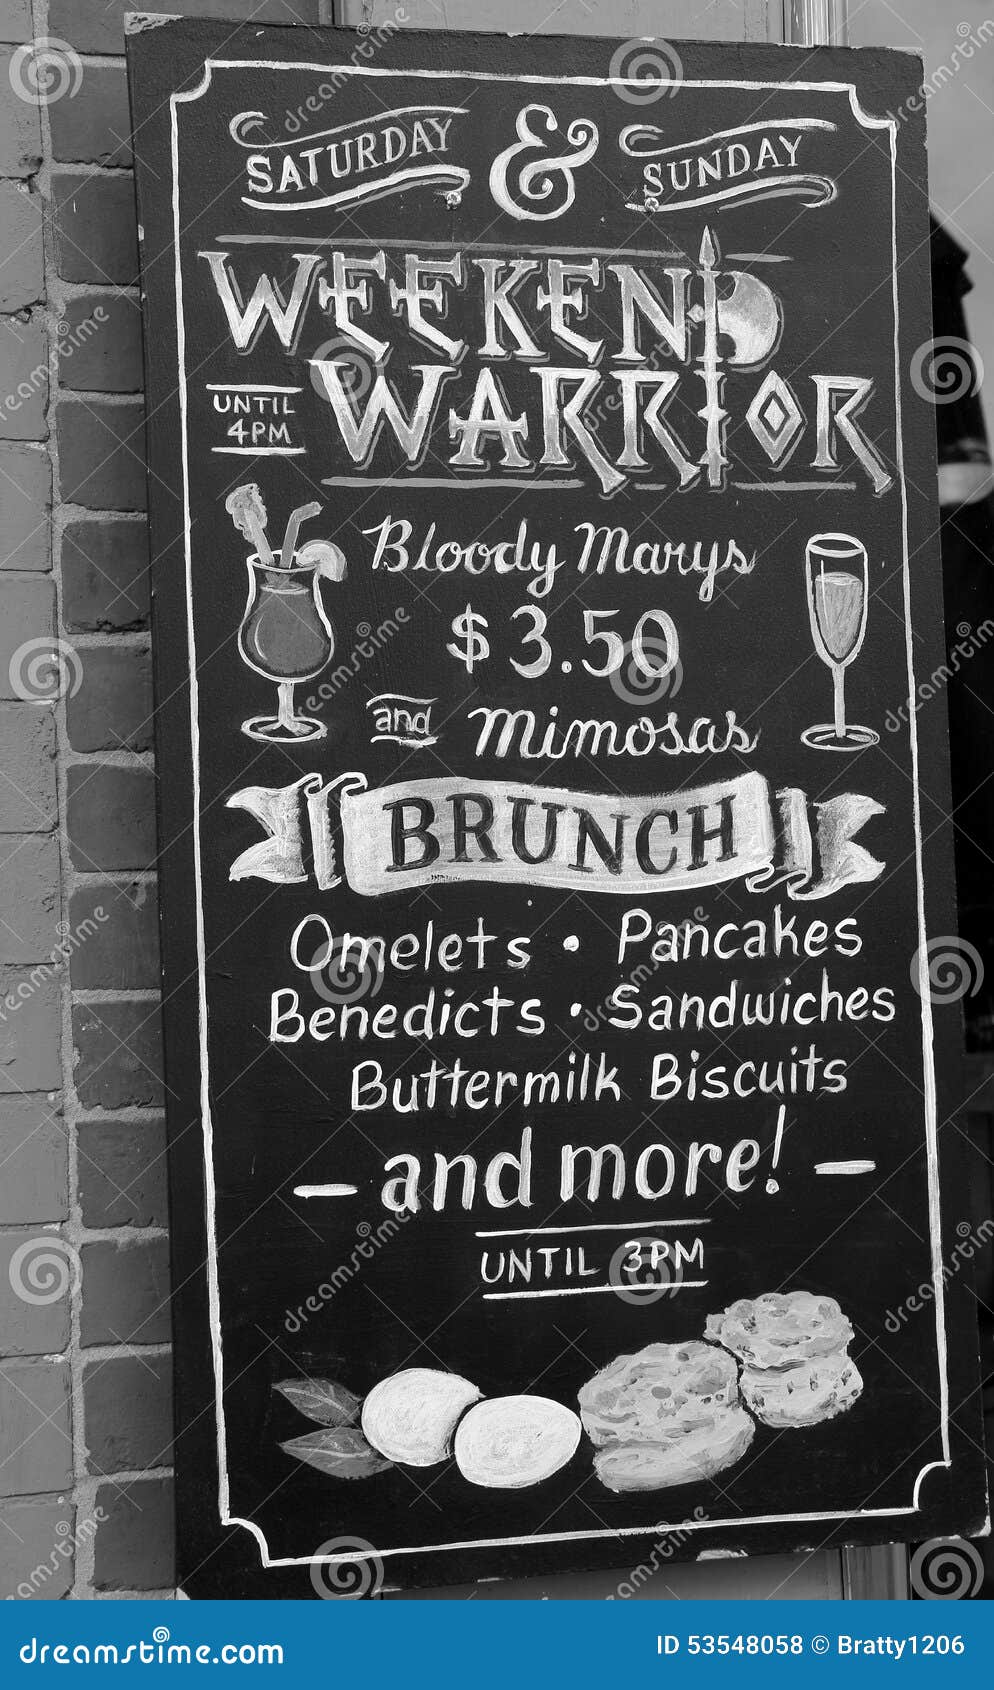 SATURDAY & SUNDAY
WEEKEND
UNTIL
4PM
WARRIOR
Bloody Marys
$3.50
and Mimosas
BRUNCH
Omelets • Pancakes
Benedicts • Sandwiches
Buttermilk Biscuits
— and more! —
UNTIL 3PM
dreamstime.com
ID 53548058 © Bratty1206